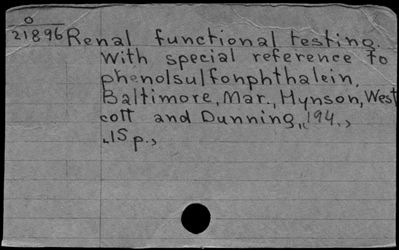 0
21896 Renal functional testing.
With special reference to
phenolsulfonphthalein,
Baltimore, Mar., Hynson, West
cott and Dunning,, 194.,
,,15 p.,